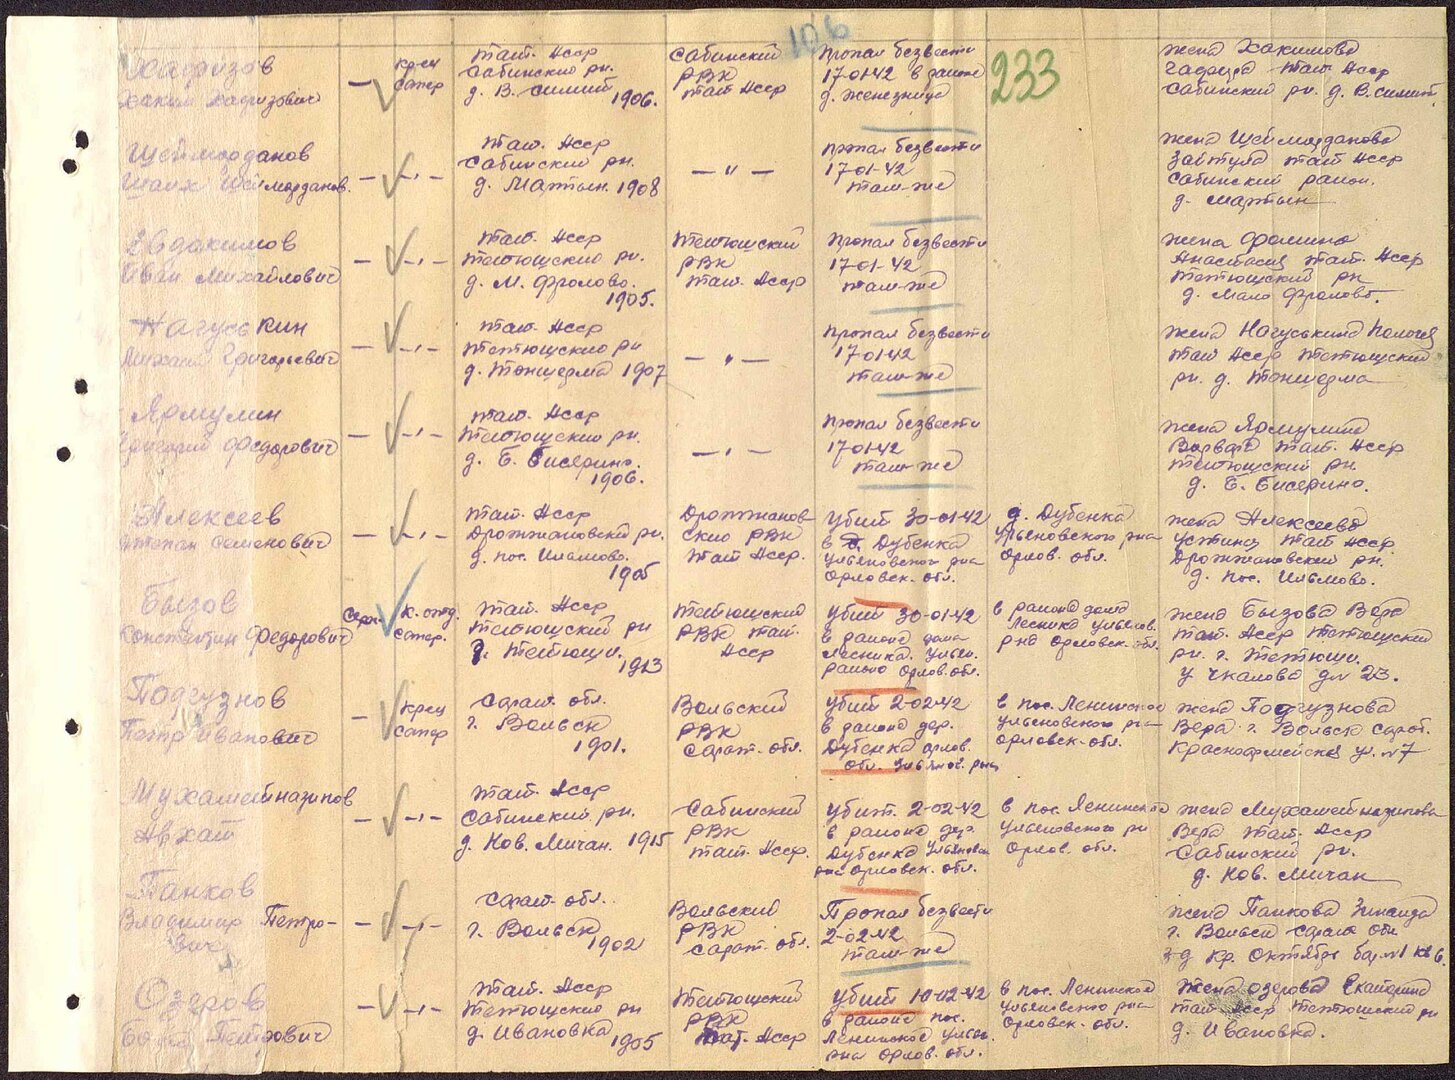 106
233
Хафизов
Хаким Хафизович
—
кр-ец
сапер
Тат. Асср
Сабинский рн.
д. В. Симит
1906.
Сабинский
РВК
Тат Асср
Пропал безвести
17-01-42 в районе
д. Железница
жена Хакимова
Тат Асср
Сабинский рн. д. В. Симит
Шеймарданов
Шаих Шеймарданов.
— -"-
Тат. Асср
Сабинский рн.
д. Мартын. 1908
— " —
Пропал безвести
17-01-42
там-же
жена Шеймарданова
Тат Асср
Сабинский район.
д. Мартын
Евдокимов
Иван Михайлович
— -"-
Тат. Асср
Тетюшский рн.
д. М. Фролово.
1905.
Тетюшский
РВК
Тат. Асср
Пропал безвести
17-01-42
там-же
жена Фомина
Анастасия Тат. Асср
Тетюшский рн
д. Мало Фролово.
Нагуськин
Михаил Григорьевич
— -"-
Тат. Асср
Тетюшский рн
д. Тоншерма 1907
— " —
Пропал безвести
17-01-42
там-же
жена Нагуськина
Тат Асср Тетюшский
рн. д. Тоншерма
Ярмулин
Григорий Федорович
— -"-
Тат. Асср
Тетюшский рн.
д. Б. Бисерино.
1906.
— " —
Пропал безвести
17-01-42
там-же
жена Ярмулина
Варвара Тат. Асср
Тетюшский рн.
д. Б. Бисерино.
Алексеев
Степан Семенович
— -"-
Тат. Асср
Дрожжановский рн.
д. пос. Ильмово.
1905
Дрожжанов
ский РВК
Тат Асср.
Убит 30-01-42
в д. Дубенка
Ульяновского р-на
Орловск. обл.
д. Дубенка
Ульяновского р-на
Орлов. обл.
жена Алексеева
Устинья Тат Асср.
Дрожжановский рн.
д. пос. Ильмово.
Бызов
Константин Федорович
серж.
к. отд.
сапер.
Тат. Асср
Тетюшский рн
г. Тетюши.
1913
Тетюшский
РВК Тат.
Асср
Убит 30-01-42
в районе дома
Лесника. Ульян.
района Орлов. обл.
в районе дома
Лесника Ульянов.
р-на Орловск. обл.
жена Бызова Вера
Тат. Асср Тетюшский
рн. г. Тетюши.
у Чкалова д№ 23.
Подгузнов
Петр Иванович
—
кр-ец
сапер
Сарат. обл.
г. Вольск
1901.
Вольский
РВК
Сарат. обл.
Убит 2-02-42
в районе дер.
Дубенка Орлов.
обл. Ульянов. р-на
в пос. Ленинское
Ульяновского р-на
Орловск. обл.
жена Подгузнова
Вера г. Вольск Сарат.
Красноармейская ул. №7
Мухаметназипов
Архат
— -"-
Тат. Асср
Сабинский рн.
д. Нов. Мичан. 1915
Сабинский
РВК
Тат. Асср.
Убит. 2-02-42
в районе дер.
Дубенка Ульяновск.
р-на Орловск. обл.
в пос. Ленинское
Ульяновского рн
Орлов. обл.
жена Мухаметназипова
Вера Тат. Асср
Сабинский рн.
д. Нов. Мичан
Панков
Владимир Петро-
вич
— -"-
Сарат. обл.
г. Вольск
1902
Вольский
РВК
Сарат. обл.
Пропал безвести
2-02-42
там-же
жена Панкова Зинаида
г. Вольск Сарат. обл.
Кр. Октябрь бар. №1 кв 6.
Озеров
Петрович
— -"-
Тат. Асср
Тетюшский рн
д. Ивановка 1905
Тетюшский
РВК
Тат. Асср
Убит 10-02-42
в районе пос.
Ленинское Ульян.
р-на Орлов. обл.
в пос. Ленинское
Ульяновского р-на
Орловск. обл.
жена Озерова Екатерина
Тат Асср Тетюшский рн
д. Ивановка.